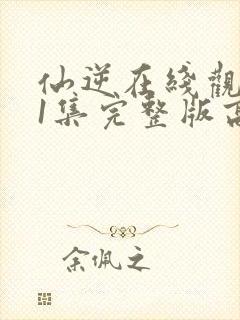 仙逆在綫觀
1集完整版高
余佩之